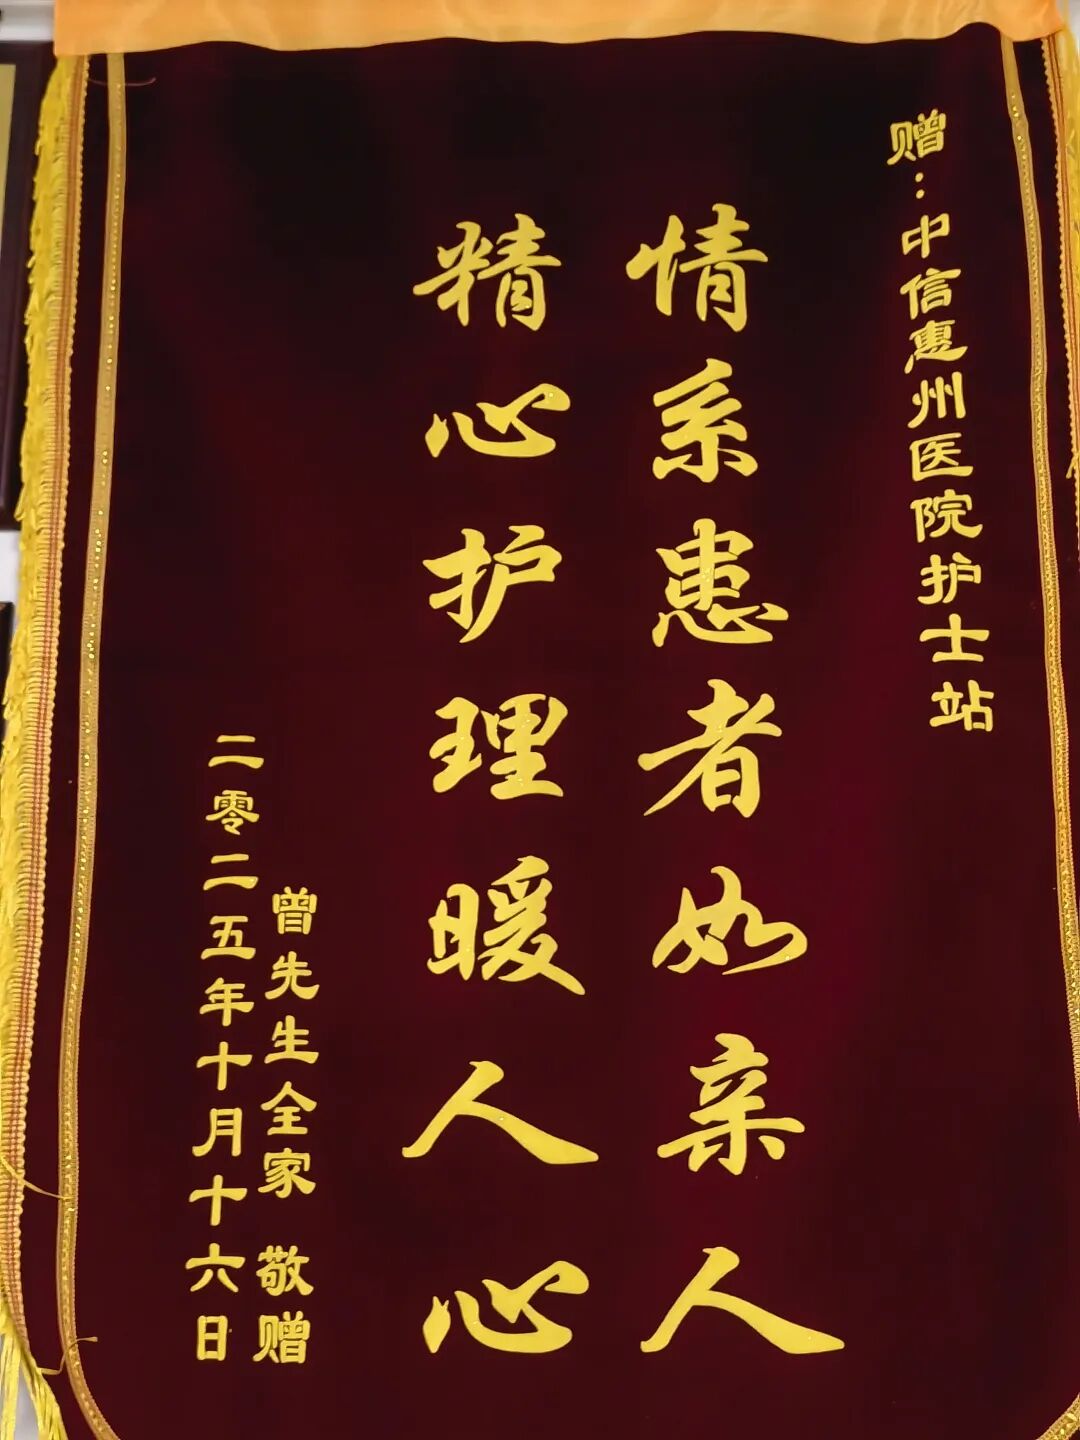 赠:中信惠州医院护士站
情系患者如亲人
精心护理暖人心
曾先生全家 敬赠
二零二五年十月十六日